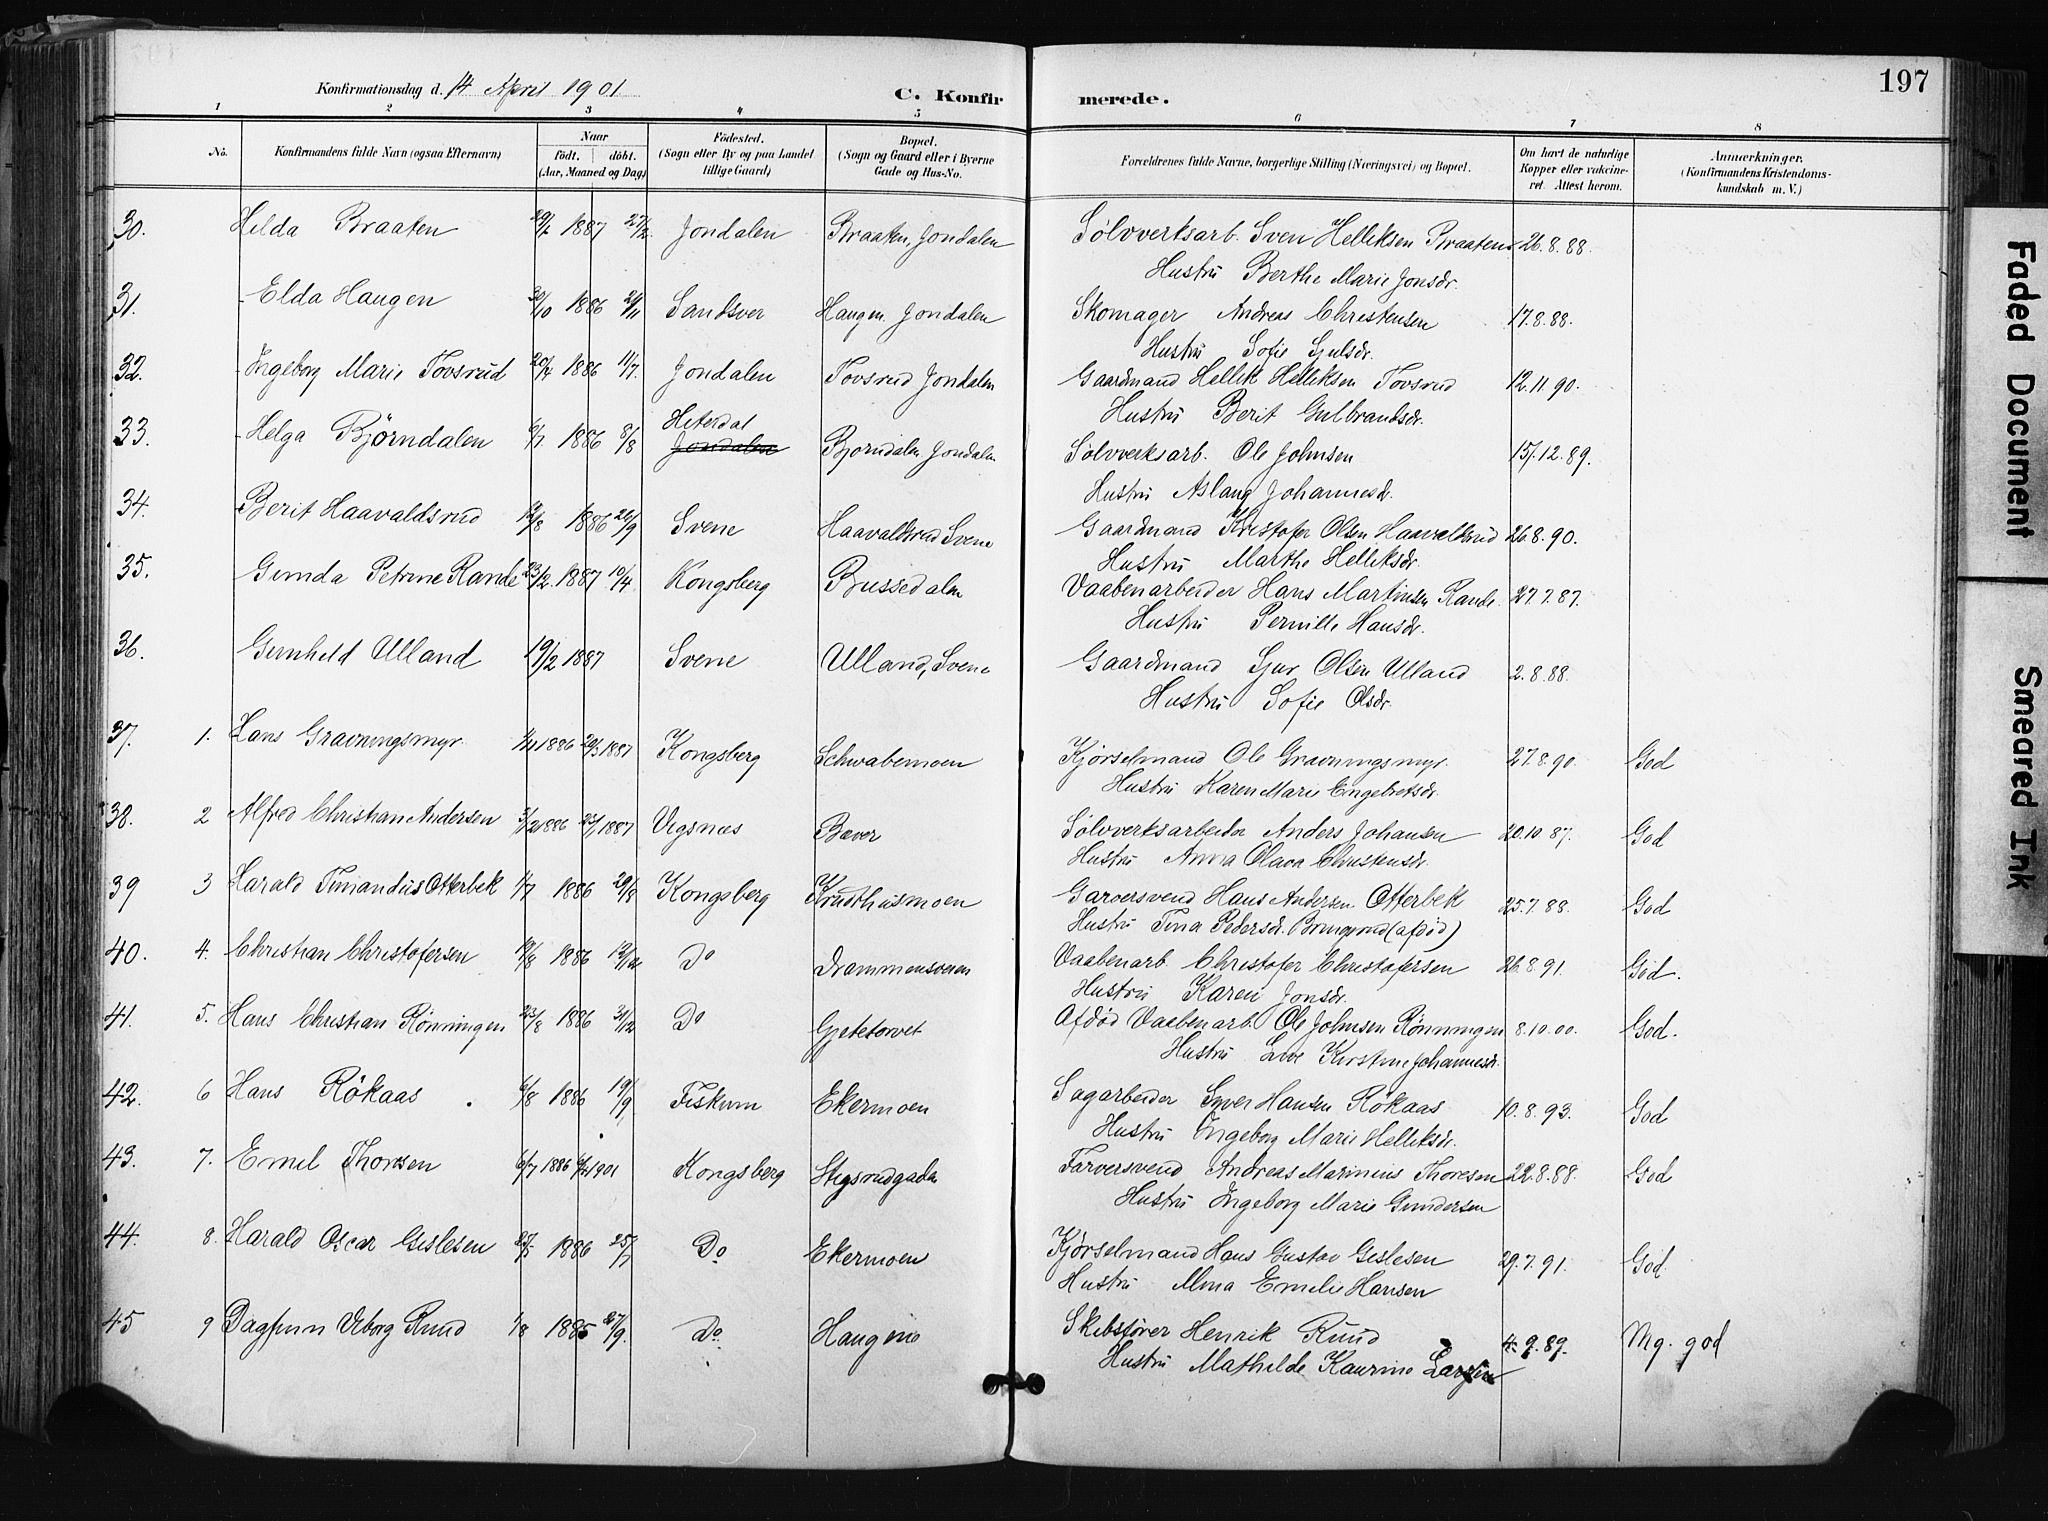 Konfirmationsdag d. 14 April 1901
C. Konfirmerede.
197
1 2 3 4 5 6 7 8
No. Konfirmandens fulde Navn (ogsaa Efternavn) Naar født. døbt. (Aar, Maaned og Dag) Fødested. (Sogn eller By og paa Landet tillige Gaard) Bopæl. (Sogn og Gaard eller i Byerne Gade og Hus-No. Forældrenes fulde Navne, borgerlige Stilling (Næringsvei) og Bopæl. Om havt de naturlige Kopper eller vakcineret. Attest herom. Anmærkninger. (Konfirmandens Kristendomskundskab m. V.)
30. Hilda Braaten 1887 27/2 Jondalen Braaten, Jondalen Sölvverksarb. Sven Helliksen Braaten 26.8.88.
Hustru Berthe Marie Jonsdr.
31. Elda Haugen 30/10 1886 21/11 Sandsver Haugen Jondalen Skomager Andreas Christensen 17.8.88.
Hustru Sofie Sjulsdr.
32. Ingeborg Marie Tovsrud 20/4 1886 11/7. Jondalen Tovsrud Jondalen Gaardmand Hellik Helliksen Tovsrud 12.11.90.
Hustru Berit Gulbrandsdr.
33. Helga Björndalen 6/7 1886 8/8 Hiterdal Jondalen Bjorndalen Jondalen Sölvverksarb. Ole Johnsen 15.12.89.
Hustru Aslaug Johannesdr.
34. Berit Haavaldsrud 12/8 1886 26/9 Svene Haavaldsrud Svene Gaardmand Kristofer Olsen Haavaldsrud 26.8.90.
Hustru Marthe Helliksdr.
35. Gunda Petrine Rande 23/2. 1887 10/4 Kongsberg Bussedalen Vaabenarbeider Hans Martinsen Rande 27.7.87.
Hustru Pernille Hansdr.
36. Gunhild Ulland 19/2 1887 Svene Ulland, Svene Gaardmand Sjur Olsen Ulland 2.8.88.
Hustru Sofie Olsdr.
37. 1. Hans Gravningsmyr 1886 20/3 1887 Kongsberg Schwabemoen Kjörselmand Ole Gravningsmyr. 27.8.90. God
Hustru Karen Marie Engebretsdr.
38. 2 Alfred Christian Andersen 3/12 1886 23/1 1887 Vigsnæs Bæver Sölvverksarbeider Anders Johansen 20.10.87. God
Hustru Anna Olava Christensdr.
39 3 Harald Timandus Otterbek 1/7 1886 29/8 Kongsberg Krudthusmoen Garversvend Hans Andersen Otterbek 25.7.88. God
Hustru Tina Pedersdr. (afdöd)
40. 4. Christian Christofersen 19/8 1886 12/12 Do Drammensveien Vaabenarb. Christofer Christofersen 26.8.91. God.
Hustru Karen Jonsdr.
41. 5. Hans Christian Rönningen 23/8 1886 31/12 Do Gjetetorvet Afdöd Vaabenarb. Ole Johnsen Rönningen 8.10.00. God.
Hustru Kirstine Johannesdr.
42. 6 Hans Rökaas 6/8 1886 19/9 Fiskum Ekermoen Sagarbeider Iver Hansen Rökaas 10.8.93. God
Hustru Ingeborg Marie Helliksdr.
43. 7. Emil Thoresen 6/7 1886 1901 Kongsberg Stigsrudgaden Farversvend Andreas Marinius Thoresen 22.8.88. God
Hustru Ingeborg Marie Gundersen
44. 8. Harald Oscar Gislesen 1886 25/7 Do. Ekermoen Kjörselmand Hans Gustav Gislesen 29.7.91. God.
Hustru Alma Emelie Hansen
45 9 Dagfinn Viborg Ruud 1/8 1885 27/9. Do. Haugene Skibsförer Henrik Ruud 4.9.89. Mg. god
Hustru Mathilde Kaurine Larsen
Faded Document
Smeared Ink